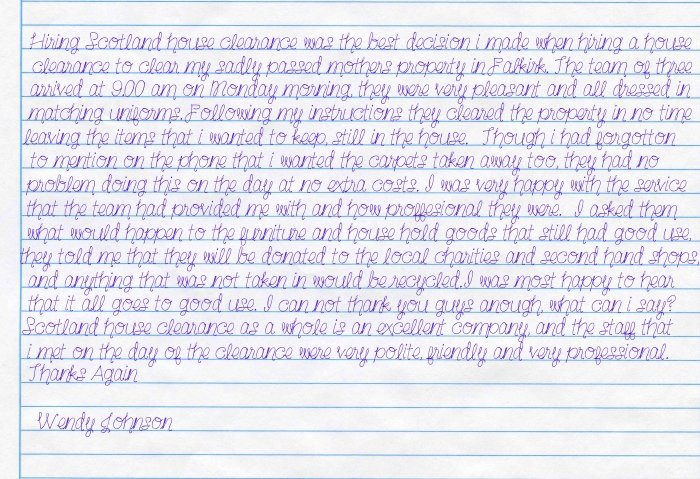 Hiring Scotland house clearance was the best decision i made when hiring a house
clearance to clear my sadly passed mothers property in Falkirk. The team of three
arrived at 9.00 am on Monday morning, they were very pleasant and all dressed in
matching uniforms. Following my instructions they cleared the property in no time
leaving the items that i wanted to keep, still in the house. Though i had forgotton
to mention on the phone that i wanted the carpets taken away too, they had no
problem doing this on the day at no extra costs. I was very happy with the service
that the team had provided me with and how proffesional they were. I asked them
what would happen to the furniture and house hold goods that still had good use,
they told me that they will be donated to the local charities and second hand shops,
and anything that was not taken in would be recycled.I was most happy to hear
that it all goes to good use. I can not thank you guys anough, what can i say?
Scotland house clearance as a whole is an excellent company, and the staff that
i met on the day of the clearance were very polite, friendly and very professional.
Thanks Again
Wendy Johnson